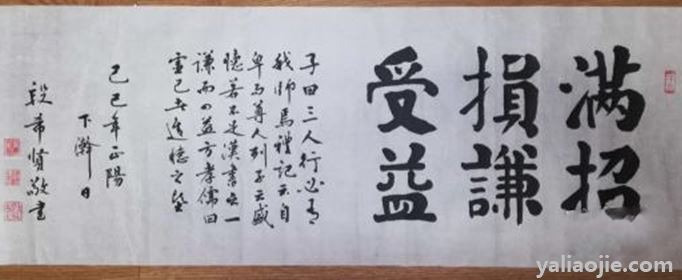 满招
損謙
受益
子曰三人行必有
我師焉禮記云自
卑而尊人列子云盛
德若不足漢書云一
謙而四益方孝儒曰
虚己者進德之基
己巳年正陽
下澣日
段希賢敬書
yaliaojie.com